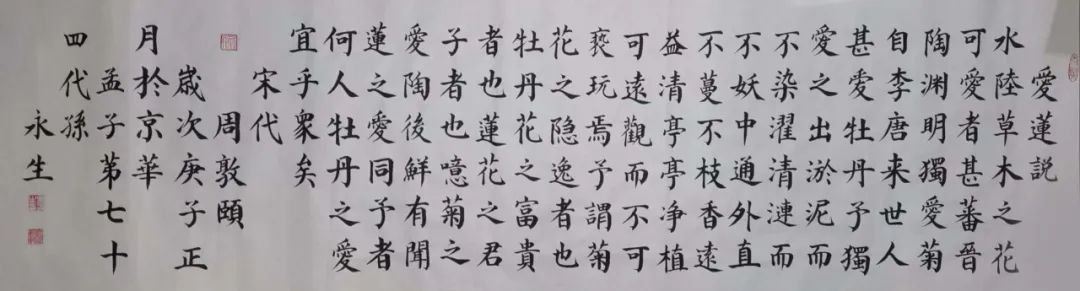 愛蓮説
水陸草木之花
可愛者甚蕃晉
陶渊明獨愛菊
自李唐来世人
甚爱牡丹予獨
愛之出淤泥而
不染濯清漣而
不妖中通外直
不蔓不枝香遠
益清亭亭净植
可遠觀而不可
亵玩焉予謂菊
花之隐逸者也
牡丹花之富貴
者也蓮花之君
子者也噫菊之
愛陶後鮮有聞
蓮之愛同予者
何人牡丹之愛
宜乎衆矣
宋代
周敦頤
歲次庚子正
月於京華
孟子苐七十
四代孫
永生